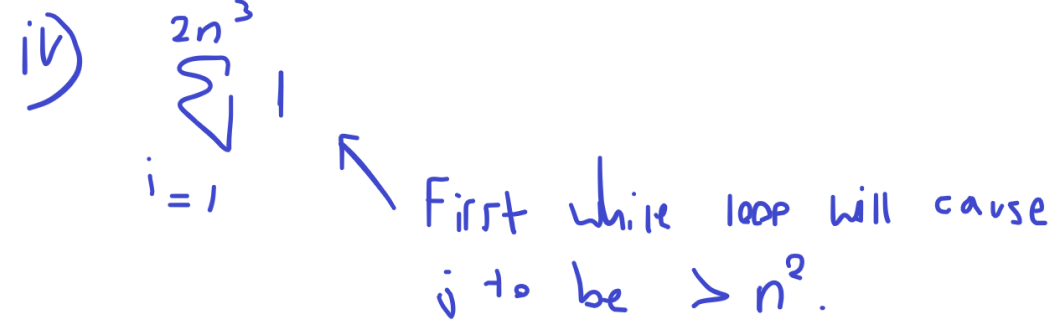 iv) 2n³
∑ 1
i = 1
First while loop will cause
j to be > n².